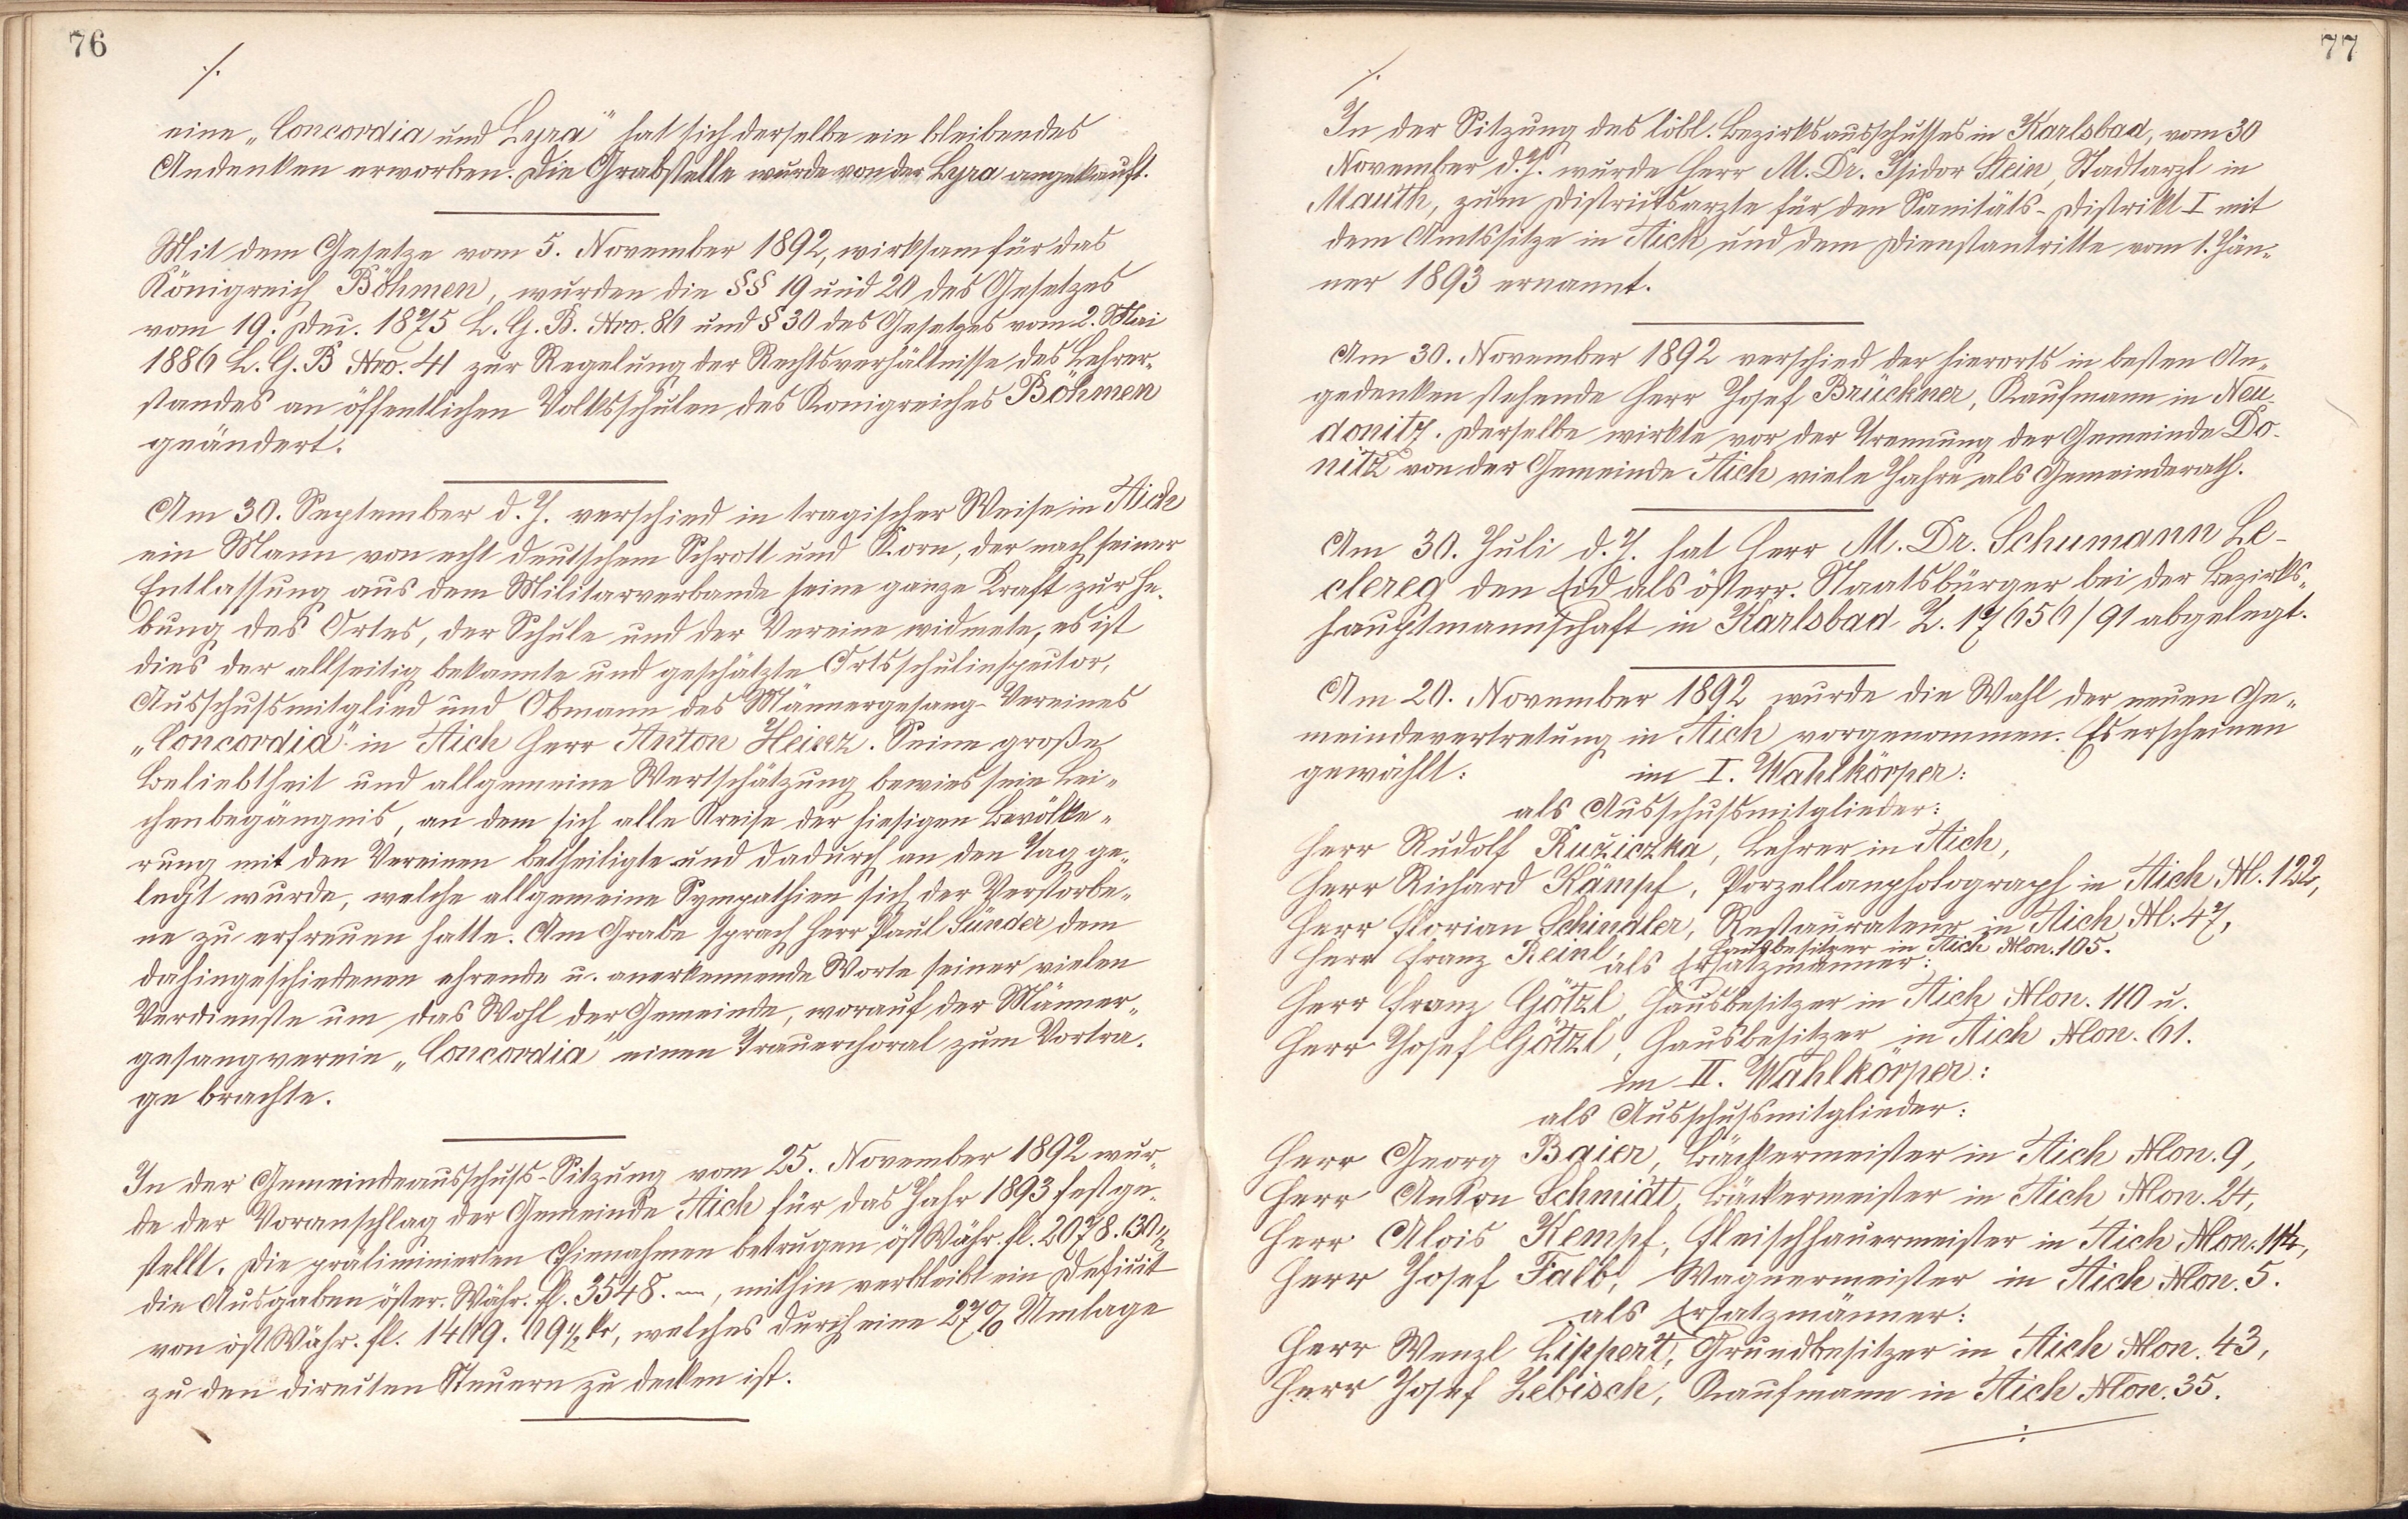 76
./.
eine „Concordia und Lyra" hat sich derselbe ein bleibendes
Andenken erworben. Die Grabstelle wurde von der Lyra angekauft.
Mit dem Gesetze vom 5. November 1892, wirksam für das
Königreich Böhmen, wurden die §§ 19 und 20 des Gesetzes
vom 19. Dez. 1875 L. G. B. Nro. 86 und § 30 des Gesetzes vom 2. Mai
1886 L. G. B Nro. 41 zur Regelung der Rechtsverhältnisse des Lehrer-
standes an öffentlichen Volksschulen des Königreiches Böhmen
geändert.
Am 30. September d. J. verschied in tragischer Weise in Aich
ein Mann von echt deutschem Schrott und Korn, der nach seiner
Entlassung aus dem Militärverbande seine ganze Kraft zur He-
bung des Ortes, der Schule und der Vereine widmete, es ist
dies der allseitig bekannte und geschätzte Ortsschulinspector,
Ausschussmitglied und Obmann des Männergesang-Vereines
„Concordia" in Aich Herr Anton Heinz. Seine große
Beliebtheit und allgemeine Wertschätzung bewies sein Lei-
chenbegängnis, an dem sich alle Kreise der hiesigen Bevölke-
rung mit den Vereinen betheiligte und dadurch an den Tag ge-
legt wurde, welche allgemeine Sympathien sich der Verstorbe-
ne zu erfreuen hatte. Am Grabe sprach Herr Paul Sünder dem
dahingeschiedenen ehrende u. anerkennende Worte seiner vielen
Verdienste um das Wohl der Gemeinde, worauf der Männer-
gesangverein „Concordia" einen Trauerchoral zum Vortra-
ge brachte.
In der Gemeindeausschuss-Sitzung vom 25. November 1892 wur-
de der Voranschlag der Gemeinde Aich für das Jahr 1893 festge-
stellt. Die präliminierten Einnahmen betrugen öst Währ. fl. 2078. 30½
die Ausgaben öster. Währ. fl. 3548. —, mithin verbleibt ein Deficit
von öst Währ. fl. 1469. 69½ kr, welches durch eine 27% Umlage
zu den directen Steuern zu decken ist.
77
./.
In der Sitzung des löbl. Bezirksausschusses in Karlsbad, vom 30
November d. J. wurde Herr M. Dr. Isidor Stein, Stadtarzt in
Mauth, zum Districtsarzte für den Sanitäts-Distrikt I mit
dem Amtssitze in Aich und dem Dienstantritte vom 1. Jän-
ner 1893 ernannt.
Am 30. November 1892 verschied der hierorts in besten An-
gedenken stehende Herr Josef Brückner, Kaufmann in Neu-
donitz. Derselbe wirkte vor der Trennung der Gemeinde Do-
nitz von der Gemeinde Aich viele Jahre als Gemeinderath.
Am 30. Juli d. J. hat Herr M. Dr. Schumann Le-
clereq den Eid als österr. Staatsbürger bei der Bezirks-
hauptmannschaft in Karlsbad Z. 17656/91 abgelegt.
Am 20. November 1892 wurde die Wahl der neuen Ge-
meindevertretung in Aich vorgenommen. Es erscheinen
gewählt: im I. Wahlkörper:
als Ausschussmitglieder:
Herr Rudolf Ružiczka, Lehrer in Aich,
Herr Richard Kämpf, Porzellanphotograph in Aich N. 122,
Herr Florian Schindler, Restaurateur in Aich N. 47,
Herr Franz Reinl Hausbesitzer in Aich Non. 105.
als Ersatzmänner:
Herr Franz Götzl, Hausbesitzer in Aich Non. 110 u.
Herr Josef Götzl, Hausbesitzer in Aich Non. 61.
im II. Wahlkörper:
als Ausschussmitglieder:
Herr Georg Baier, Bäckermeister in Aich Non. 9,
Herr Anton Schmidt, Bäckermeister in Aich Non. 24,
Herr Alois Kempf, Fleischhauermeister in Aich Non. 114,
Herr Josef Falb, Wagnermeister in Aich Non. 5.
als Ersatzmänner:
Herr Wenzl Lippert, Grundbesitzer in Aich Non. 43,
Herr Josef Lebisch, Kaufmann in Aich Non. 35.
./.